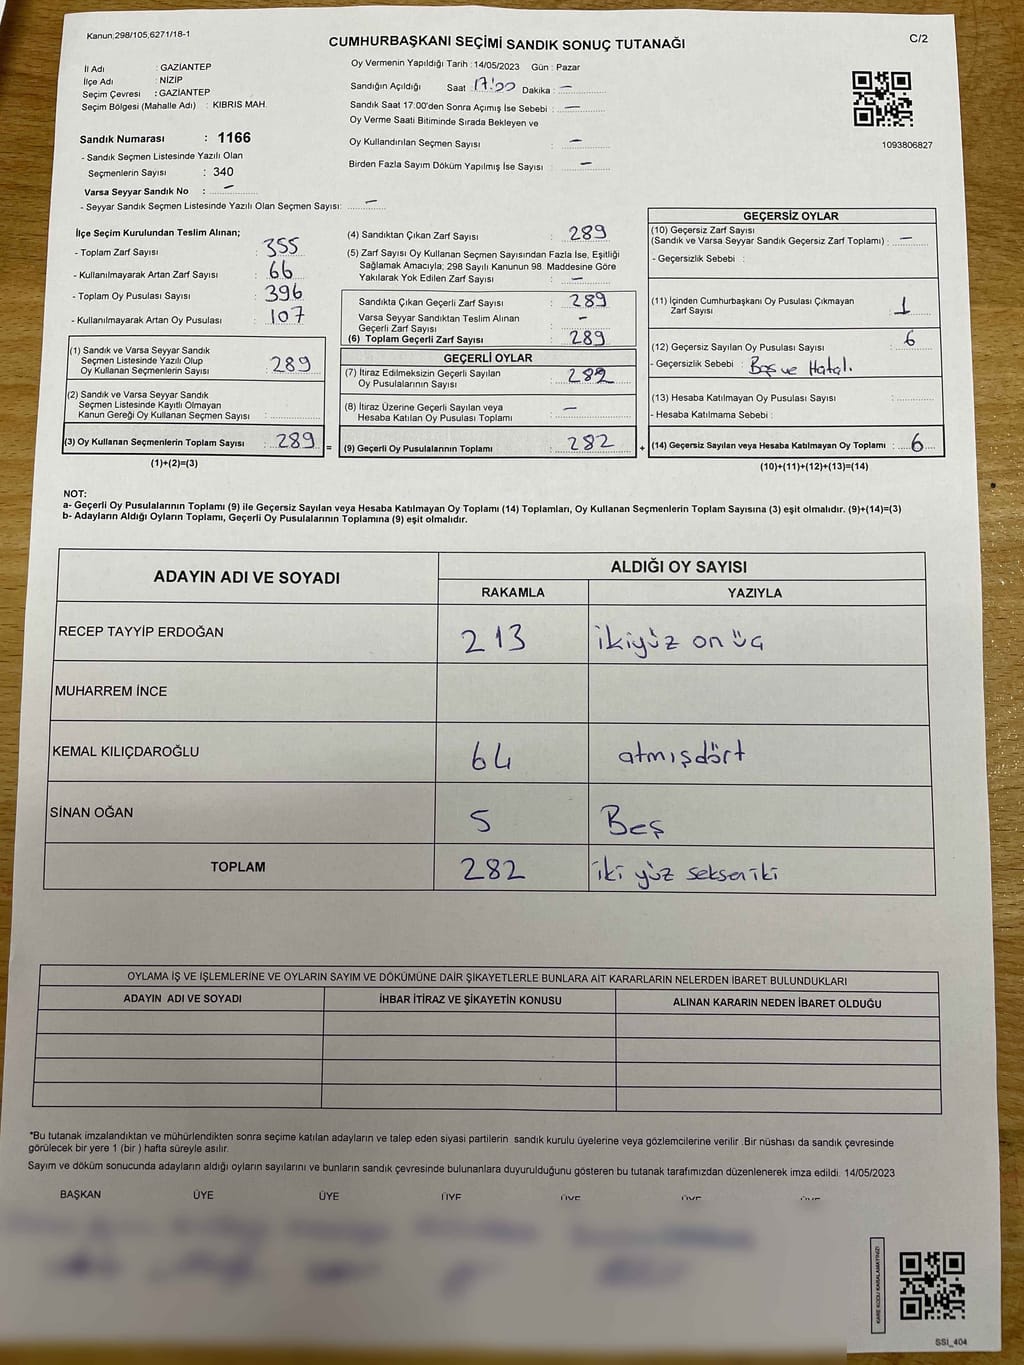 Kanun;298/105,6271/18-1
CUMHURBAŞKANI SEÇİMİ SANDIK SONUÇ TUTANAĞI
C/2
İl Adı : GAZİANTEP
İlçe Adı : NİZİP
Seçim Çevresi : GAZİANTEP
Seçim Bölgesi (Mahalle Adı) : KIBRIS MAH.
Sandık Numarası : 1166
- Sandık Seçmen Listesinde Yazılı Olan
Seçmenlerin Sayısı : 340
Varsa Seyyar Sandık No : —
- Seyyar Sandık Seçmen Listesinde Yazılı Olan Seçmen Sayısı: —
Oy Vermenin Yapıldığı Tarih : 14/05/2023 Gün : Pazar
Sandığın Açıldığı Saat : 17:00 Dakika : —
Sandık Saat 17:00'den Sonra Açımış İse Sebebi : —
Oy Verme Saati Bitiminde Sırada Bekleyen ve
Oy Kullandırılan Seçmen Sayısı : —
Birden Fazla Sayım Döküm Yapılmış İse Sayısı : —
1093806827
İlçe Seçim Kurulundan Teslim Alınan;
- Toplam Zarf Sayısı : 355
- Kullanılmayarak Artan Zarf Sayısı : 66
- Toplam Oy Pusulası Sayısı : 396
- Kullanılmayarak Artan Oy Pusulası : 107
(1) Sandık ve Varsa Seyyar Sandık
Seçmen Listesinde Yazılı Olup
Oy Kullanan Seçmenlerin Sayısı : 289
(2) Sandık ve Varsa Seyyar Sandık
Seçmen Listesinde Kayıtlı Olmayan
Kanun Gereği Oy Kullanan Seçmen Sayısı :
(3) Oy Kullanan Seçmenlerin Toplam Sayısı : 289 =
(1)+(2)=(3)
(4) Sandıktan Çıkan Zarf Sayısı : 289
(5) Zarf Sayısı Oy Kullanan Seçmen Sayısından Fazla İse, Eşitliği
Sağlamak Amacıyla; 298 Sayılı Kanunun 98. Maddesine Göre
Yakılarak Yok Edilen Zarf Sayısı : —
Sandıkta Çıkan Geçerli Zarf Sayısı : 289
Varsa Seyyar Sandıktan Teslim Alınan
Geçerli Zarf Sayısı : —
(6) Toplam Geçerli Zarf Sayısı : 289
GEÇERLİ OYLAR
(7) İtiraz Edilmeksizin Geçerli Sayılan
Oy Pusulalarının Sayısı : 282
(8) İtiraz Üzerine Geçerli Sayılan veya
Hesaba Katılan Oy Pusulası Toplamı : —
(9) Geçerli Oy Pusulalarının Toplamı : 282 +
GEÇERSİZ OYLAR
(10) Geçersiz Zarf Sayısı
(Sandık ve Varsa Seyyar Sandık Geçersiz Zarf Toplamı) : —
- Geçersizlik Sebebi :
(11) İçinden Cumhurbaşkanı Oy Pusulası Çıkmayan
Zarf Sayısı : 1
(12) Geçersiz Sayılan Oy Pusulası Sayısı : 6
- Geçersizlik Sebebi : Boş ve Hatal.
(13) Hesaba Katılmayan Oy Pusulası Sayısı :
- Hesaba Katılmama Sebebi :
(14) Geçersiz Sayılan veya Hesaba Katılmayan Oy Toplamı : 6
(10)+(11)+(12)+(13)=(14)
NOT:
a- Geçerli Oy Pusulalarının Toplamı (9) ile Geçersiz Sayılan veya Hesaba Katılmayan Oy Toplamı (14) Toplamları, Oy Kullanan Seçmenlerin Toplam Sayısına (3) eşit olmalıdır. (9)+(14)=(3)
b- Adayların Aldığı Oyların Toplamı, Geçerli Oy Pusulalarının Toplamına (9) eşit olmalıdır.
ADAYIN ADI VE SOYADI
ALDIĞI OY SAYISI
RAKAMLA YAZIYLA
RECEP TAYYİP ERDOĞAN 213 ikiyüz onüç
MUHARREM İNCE
KEMAL KILIÇDAROĞLU 64 atmışdört
SİNAN OĞAN 5 Beş
TOPLAM 282 iki yüz sekseniki
OYLAMA İŞ VE İŞLEMLERİNE VE OYLARIN SAYIM VE DÖKÜMÜNE DAİR ŞİKAYETLERLE BUNLARA AİT KARARLARIN NELERDEN İBARET BULUNDUKLARI
ADAYIN ADI VE SOYADI İHBAR İTİRAZ VE ŞİKAYETİN KONUSU ALINAN KARARIN NEDEN İBARET OLDUĞU
*Bu tutanak imzalandıktan ve mühürlendikten sonra seçime katılan adayların ve talep eden siyasi partilerin sandık kurulu üyelerine veya gözlemcilerine verilir .Bir nüshası da sandık çevresinde
görülecek bir yere 1 (bir ) hafta süreyle asılır.
Sayım ve döküm sonucunda adayların aldığı oyların sayılarını ve bunların sandık çevresinde bulunanlara duyurulduğunu gösteren bu tutanak tarafımızdan düzenlenerek imza edildi. 14/05/2023
BAŞKAN ÜYE ÜYE ÜYE ÜYE ÜYE ÜYE
KARE KODU KARALAMAYINIZ!
SSİ_404